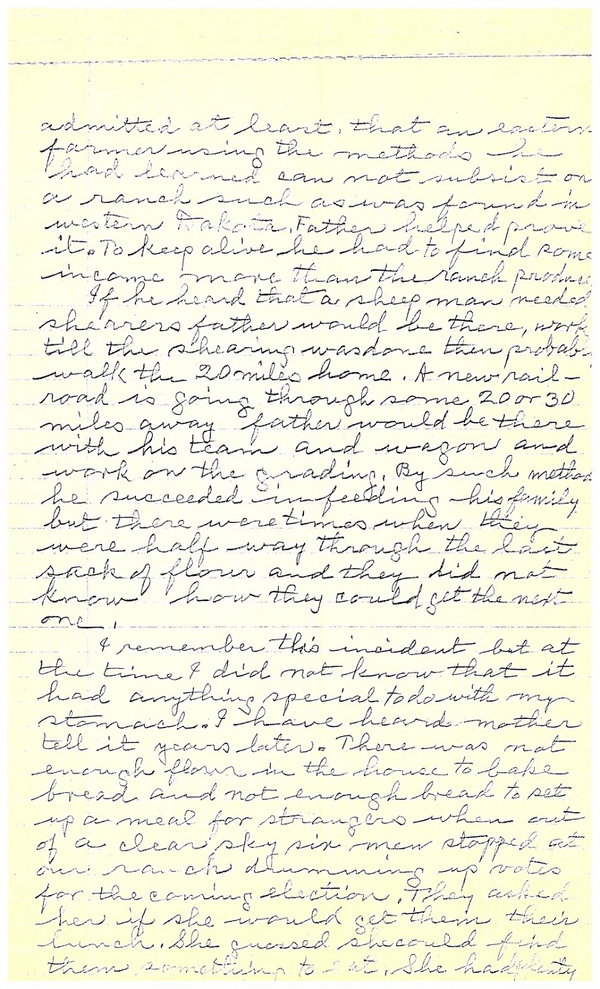 admitted at least, that an eastern
farmer using the methods he
had learned can not subsist on
a ranch such as was found in
western Dakota. Father helped prove
it. To keep alive he had to find some
income more than the ranch produce
If he heard that a sheep man needed
shearers father would be there, work
till the shearing was done then probabl
walk the 20 miles home. A new rail-
road is going through some 20 or 30
miles away father would be there
with his team and wagon and
work on the grading. By such method
he succeeded in feeding his family
but there were times when they
were half way through the last
sack of flour and they did not
know how they could get the next
one.
I remember this incident but at
the time I did not know that it
had anything special to do with my
stomach. I have heard mother
tell it years later. There was not
enough flour in the house to bake
bread and not enough bread to set
up a meal for strangers when out
of a clear sky six men stopped at
our ranch drumming up votes
for the coming election. They asked
her if she would get them their
lunch. She guessed she could find
them something to eat. She had plenty